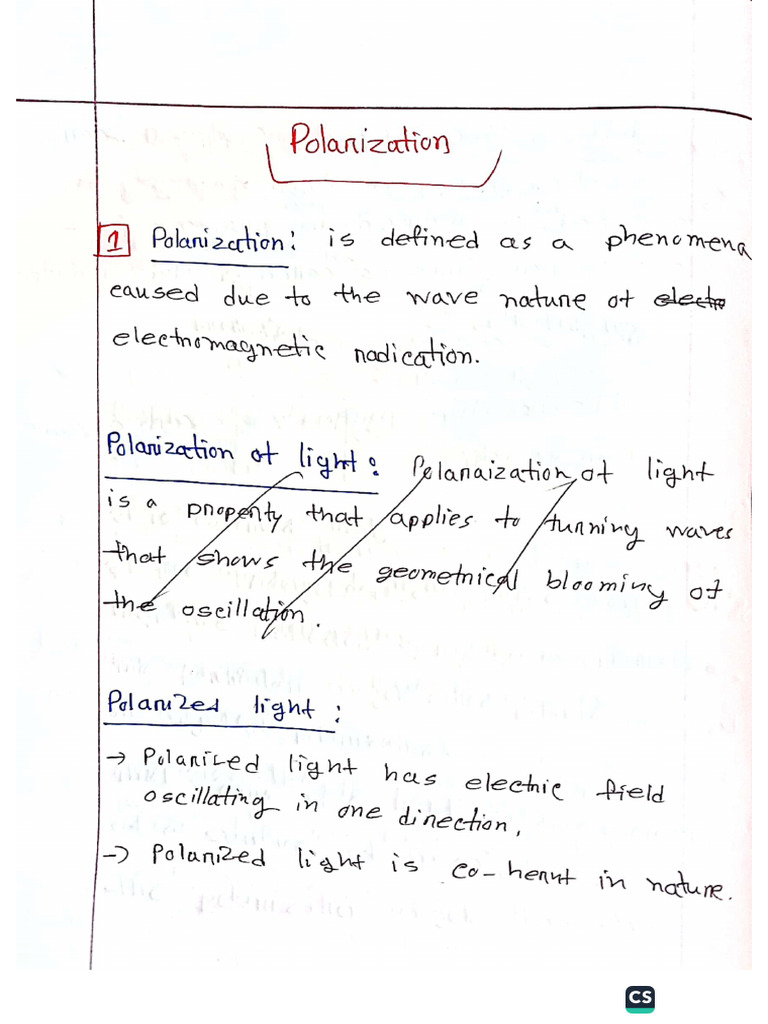 Polarization
1 Polarization: is defined as a phenomena
caused due to the wave nature of electro
electromagnetic radication.
Polarization of light: Polanaization of light
is a property that applies to turning waves
that shows the geometrical blooming of
the oscillation.
Polarized light:
→ Polarized light has electric field
oscillating in one direction,
→ Polarized light is co-hernt in nature.
CS